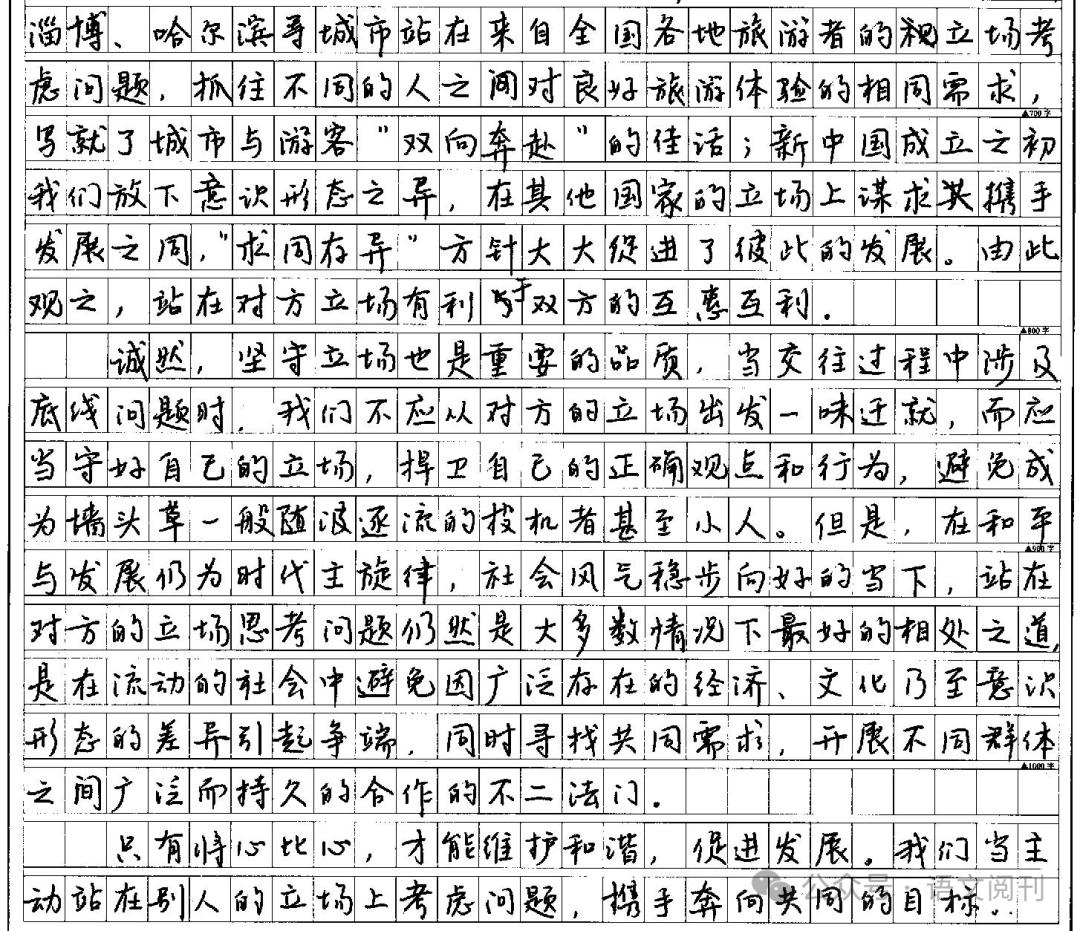 淄博、哈尔滨等城市站在来自全国各地旅游者的视立场考
虑问题，抓住不同的人之间对良好旅游体验的相同需求，
▲700字
写就了城市与游客“双向奔赴”的佳话；新中国成立之初
我们放下意识形态之异，在其他国家的立场上谋求共携手
发展之同，“求同存异”方针大大促进了彼此的发展。由此
观之，站在对方立场有利于双方的互惠互利．
▲800字
诚然，坚守立场也是重要的品质，当交往过程中涉及
底线问题时，我们不应从对方的立场出发一味迁就，而应
当守好自己的立场，捍卫自己的正确观点和行为，避免成
为墙头草一般随波逐流的投机者甚至小人。但是，在和平
▲900字
与发展仍为时代主旋律，社会风气稳步向好的当下，站在
对方的立场思考问题仍然是大多数情况下最好的相处之道，
是在流动的社会中避免因广泛存在的经济、文化乃至意识
形态的差异引起争端，同时寻找共同需求，开展不同群体
▲1000字
之间广泛而持久的合作的不二法门．
只有将心比心，才能维护和谐，促进发展。我们当主
动站在别人的立场上考虑问题，携手奔向共同的目标．
公众号：语文阅刊